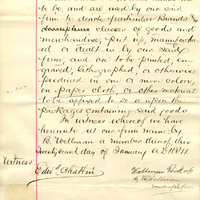 to be and are used by our said
firm to denote particular Brands &
classes of goods and
merchandise, put up, manufactured
or dealt in by our said
firm, and are to be printed, en-
graved, lithographed, or otherwise
produced in one or more colors,
on paper, cloth, or other material
to be affixed to or upon the
packages containing said goods
In witness whereof we have
hereunto set our firm name by
B. Wellman a member thereof this
day of January A.D. 1871
Witness